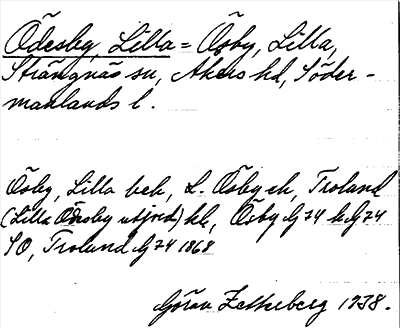 Ödesby, Lilla = Ösby, Lilla,
Strängnäs sn, Åkers hd, Söder-
manlands l.
Ösby, Lilla beb, L. Ösby ek, Troland
(Lilla Ödesby utjord) hk, Ösby G 74 k G 74
SO, Trolund G 74 1868
Göran Zetterberg 1938.